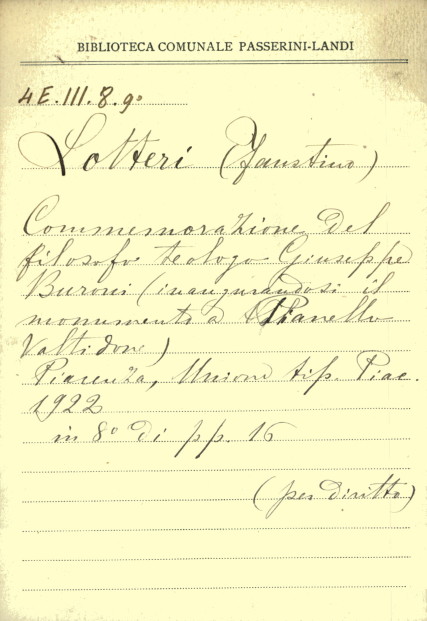 BIBLIOTECA COMUNALE PASSERINI-LANDI
4E.III.8.9º
Lotteri (Faustino)
Commemorazione del
filosofo teologo Giuseppe
Buroni (inaugurandosi il
monumento a Pianello
Valtidone)
Piacenza, Unione tip. Piac.
1922
in 8º di pp. 16
(per diritto)